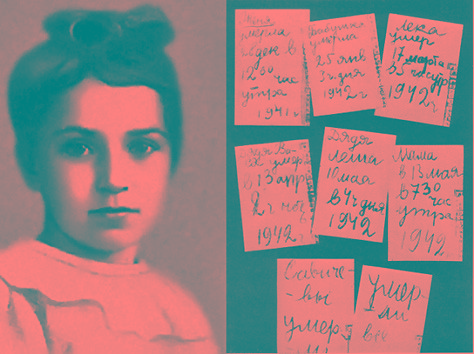 Женя
умерла
28 дек в
12 час
утра
1941 г.
Бабушка
умерла
25 янв
3 ч дня
1942 г.
Лека
умер
17 марта
в 5 час утр
1942 г.
Дядя Ва-
ся умер
в 13 апр
2 ч ноч
1942 г.
Дядя
Леша
10 мая
в 4 ч дня
1942
Мама
в 13 мая
в 7 30
час
утра
1942 г.
Савиче-
-вы
умер
умер-
-ли
все